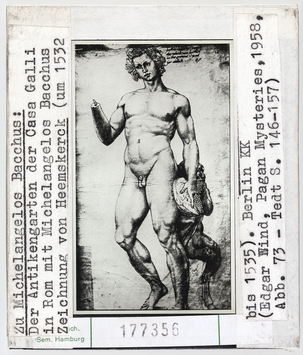 Zu Michelangelos Bacchus:
Der Antikengarten der Casa Galli
in Rom mit Michelangelos Bacchus
Zeichnung von Heemskerck (um 1532
bis 1535). Berlin KK
(Edgar Wind, Pagan Mysteries,1958,
Abb. 73 - Tedt S. 146-157)
Sem. Hamburg
177356